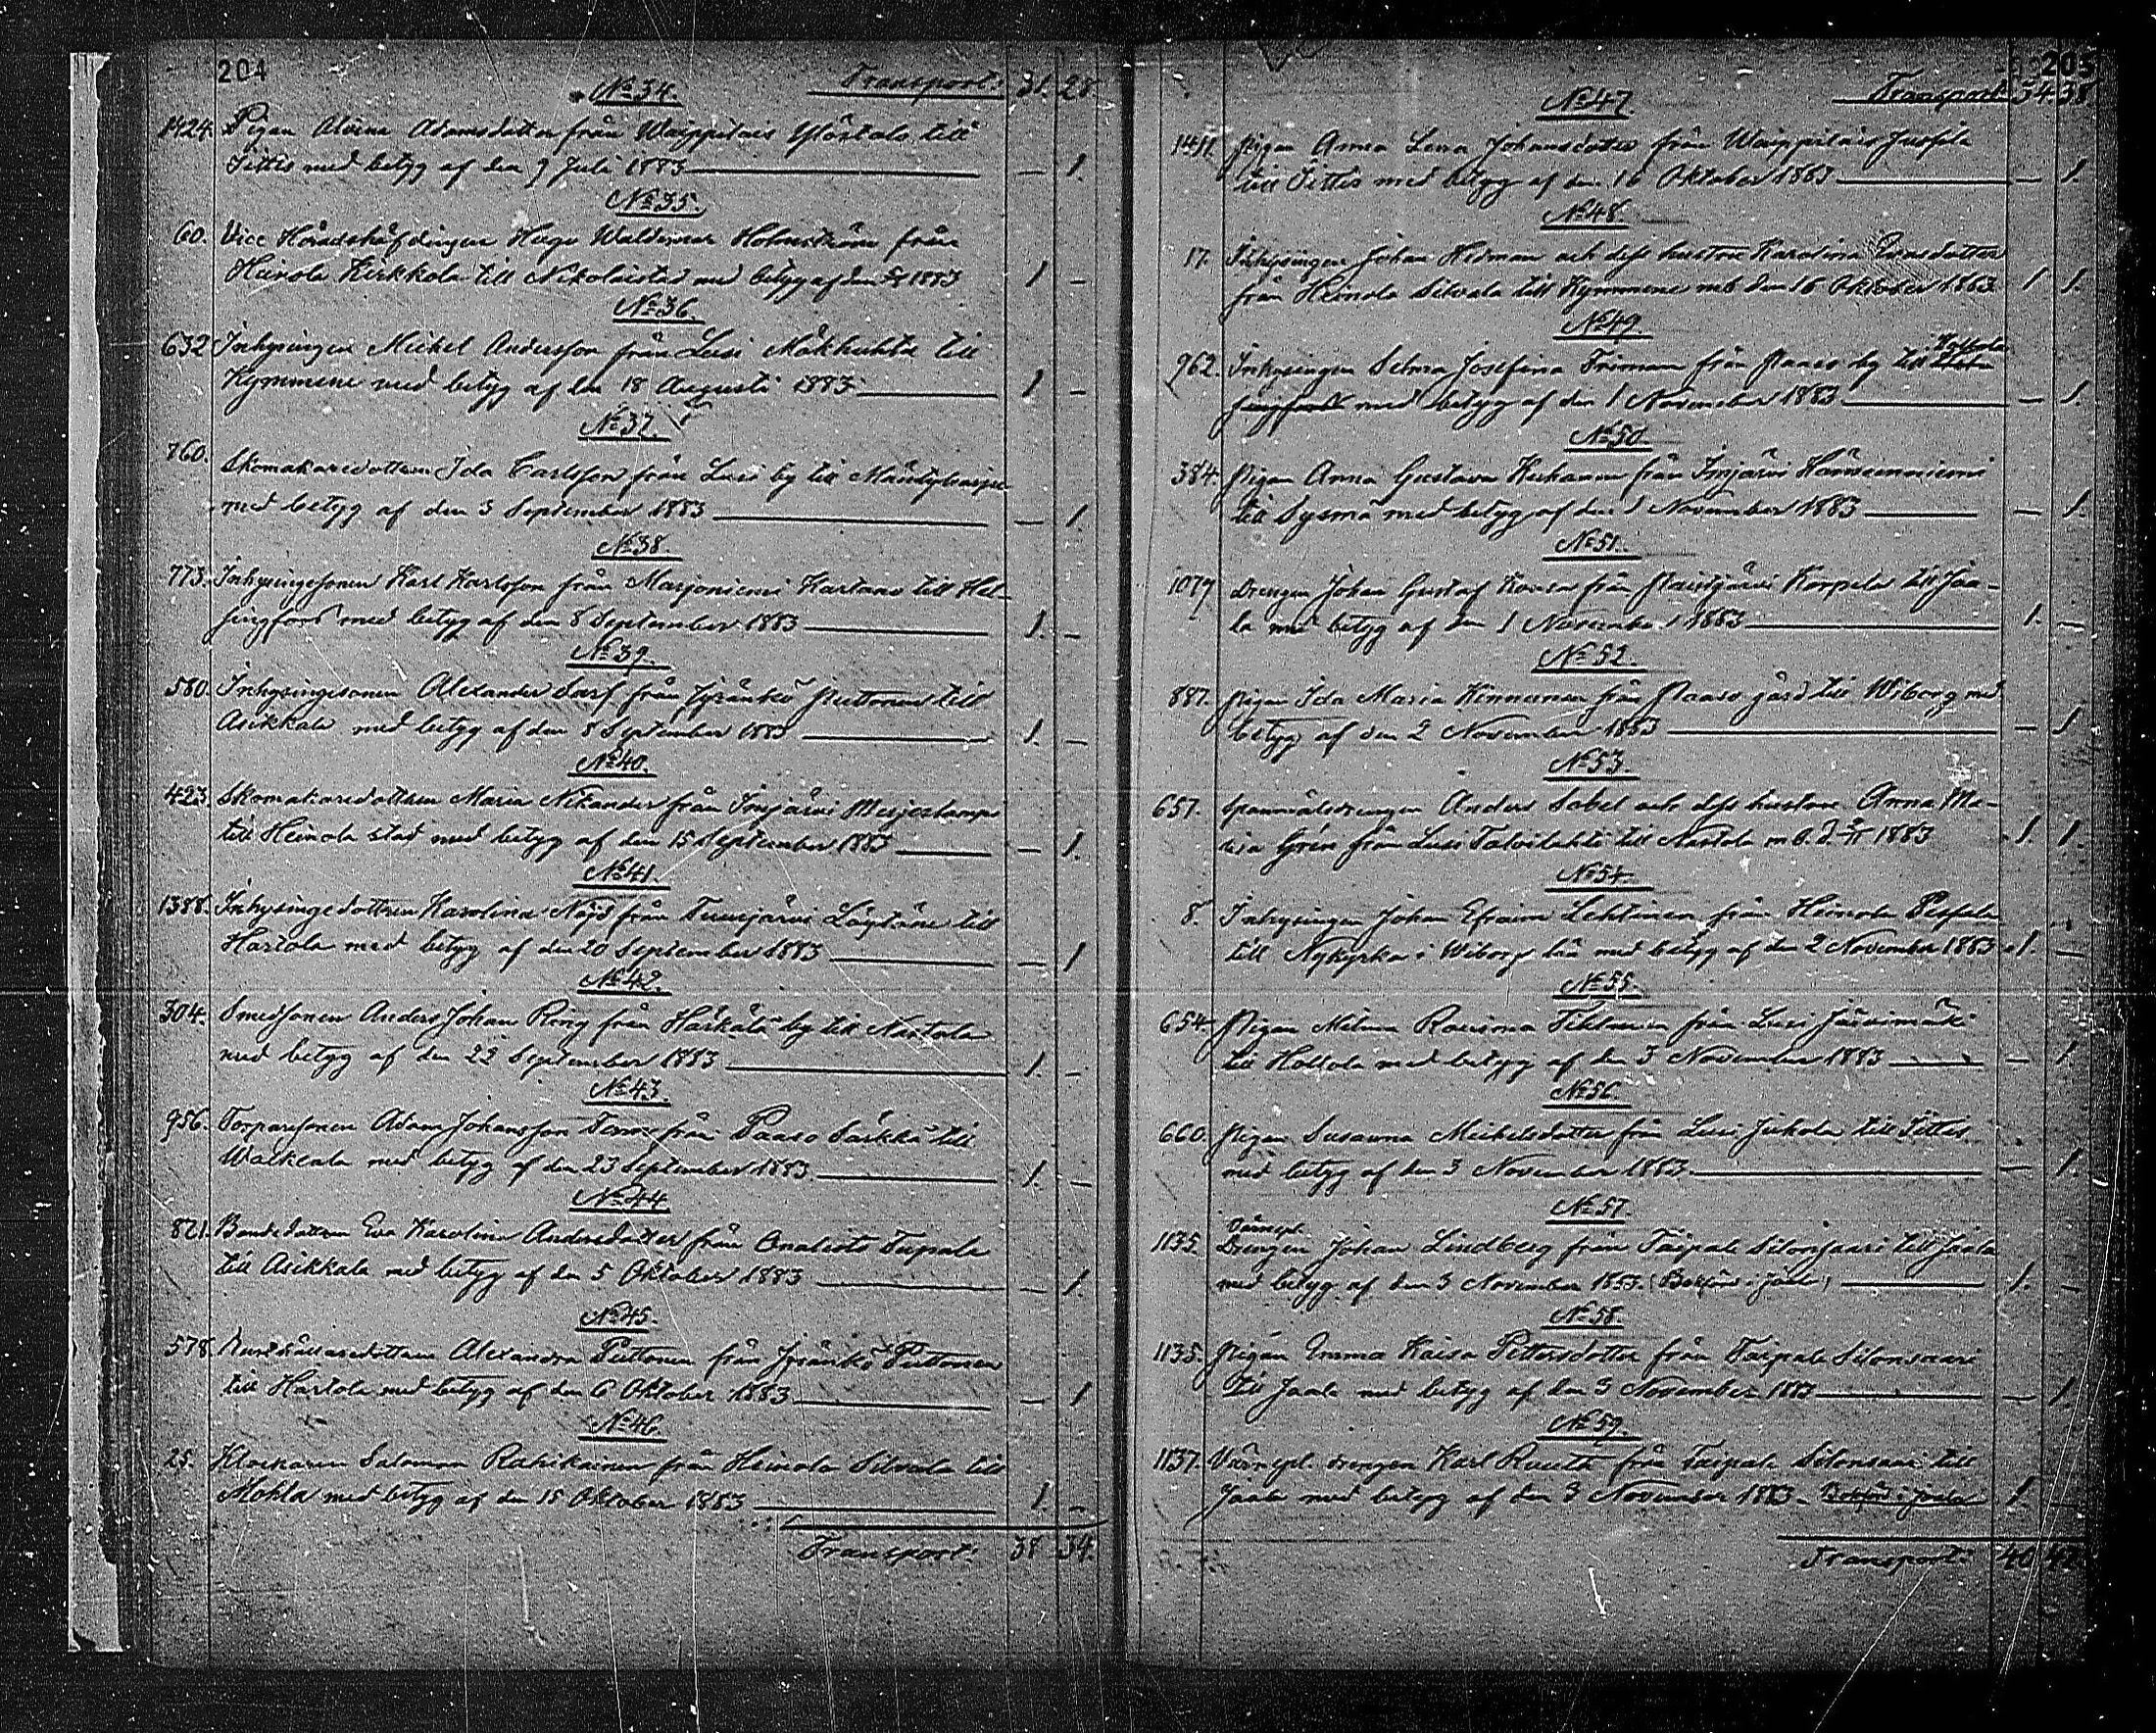 204
No 34. Transport: 31. 28
1424. Pigan Alvina Adamsdotter från Waippilais Yliskalo till
Jittis med betyg af den 9 Juli 1883 — 1.
No 35.
60. Vice Häradshöfdingen Hugo Waldemar Holmström från
Heinola Kirkkola till Nikolaistad med betyg af den 1883 1 —
No 36.
632 Inhysingen Mickel Andersson från Lusi Mäkhuhta till
Kymmene med betyg af den 18 Augusti 1883 1 —
No 37.
760. Skomakaredottren Ida Carlsson från Lusi by till Mäntyharju
med betyg af den 3 September 1883 — 1.
No 38.
773. Inhysingesonen Karl Karlsson från Marjoniemi Kartano till Hel-
singfors med betyg af den 8 September 1883 1. —
No 39.
580. Inhysingesonen Alexander Sarf från Jyränkö Puttonen till
Asikkala med betyg af den 8 September 1883 1. —
No 40.
423. Skomakaredottren Maria Nikander från Imjärvi
till Heinola stad med betyg af den 15 September 1883 — 1.
No 41.
1388. Inhysingedottren Karolina Nöjd från Tuusjärvi till
Hartola med betyg af den 20 September 1883 — 1
No 42.
304. Smedsonen Anders Johan Ring från Härkälä by till Nastola
med betyg af den 22 September 1883 1. —
No 43.
956. Torparesonen Adam Johansson från Paaso Särkkä till
Walkeala med betyg af den 23 September 1883 1. —
No 44
821. Bondedottren Eva Karolina Andersdotter från Onalis Tupala
till Asikkala med betyg af den 5 Oktober 1883 — 1.
No 45.
578 Alexandra Puttonen från Jyränkö Puttonen
till Hartola med betyg af den 6 Oktober 1883 — 1
No 46.
25. Klockaren Salomon Rahikainen från Heinola Silvola till
Mohla med betyg af den 15 Oktober 1883 1. —
Transport: 38 34.
205
No 47. Transport 34. 38
1411. Pigan Anna Lena Johansdotter från Waippilais Jussila
till Jittis med betyg af den 16 Oktober 1883 — 1.
No 48.
17. Inhysingen Johan Hedman och dess hustru Karolina
från Heinola Silvola till Kymmene mb den 16 Oktober 1883 1 1.
No 49.
Hollola
962. Inhysingen Selma Josefina Friman från Paaso by till
med betyg af den 1 November 1883 — 1.
No 50.
384. Pigan Anna Gustava från Imjärvi Hänninniemi
till Sysmä med betyg af den 1 November 1883 — 1.
No 51.
1079 Drengen Johan Gustaf från Paistjärvi Korpela till Jaa-
la med betyg af den 1 November 1883 1. —
No 52.
887. Pigan Ida Maria Kinnunen från Paaso gård till Wiborg med
betyg af den 2 November 1883 — 1.
No 53.
657. Spannmålsdrengen Anders Sabel och dess hustru Anna Ma-
ria Grén från Lusi Talvilahti till Nastola m.b.d. 1883 1. 1.
No 54.
8. Inhysingen Johan Efraim Lehtinen från Heinola Pessala
till Nykyrka i Wiborgs län med betyg af den 2 November 1883 1. —
No 55.
654. Pigan Milma Rosiina från Lusi
till Hollola med betyg af den 3 November 1883 — 1.
No 56.
660. Pigan Susanna Mickelsdotter från Lusi Jukola till Jittis
med betyg af den 3 November 1883 — 1.
No 57.
Värnepl.
1135. Drengen Johan Lindberg från Taipale Silonsaari till Jaala
med betyg af den 3 November 1883. (Bokförd i Jaala) 1. —
No 58.
1135. Pigan Emma Kaisa Pettersdotter från Taipale Silonsaari
till Jaala med betyg af den 3 November 1883 — 1.
No 59.
1137. Värnepl. drengen Karl Rautu från Taipale Silonsaari till
Jaala med betyg af den 3 November 1883. Bokförd i Jaala 1. —
Transport: 40 47